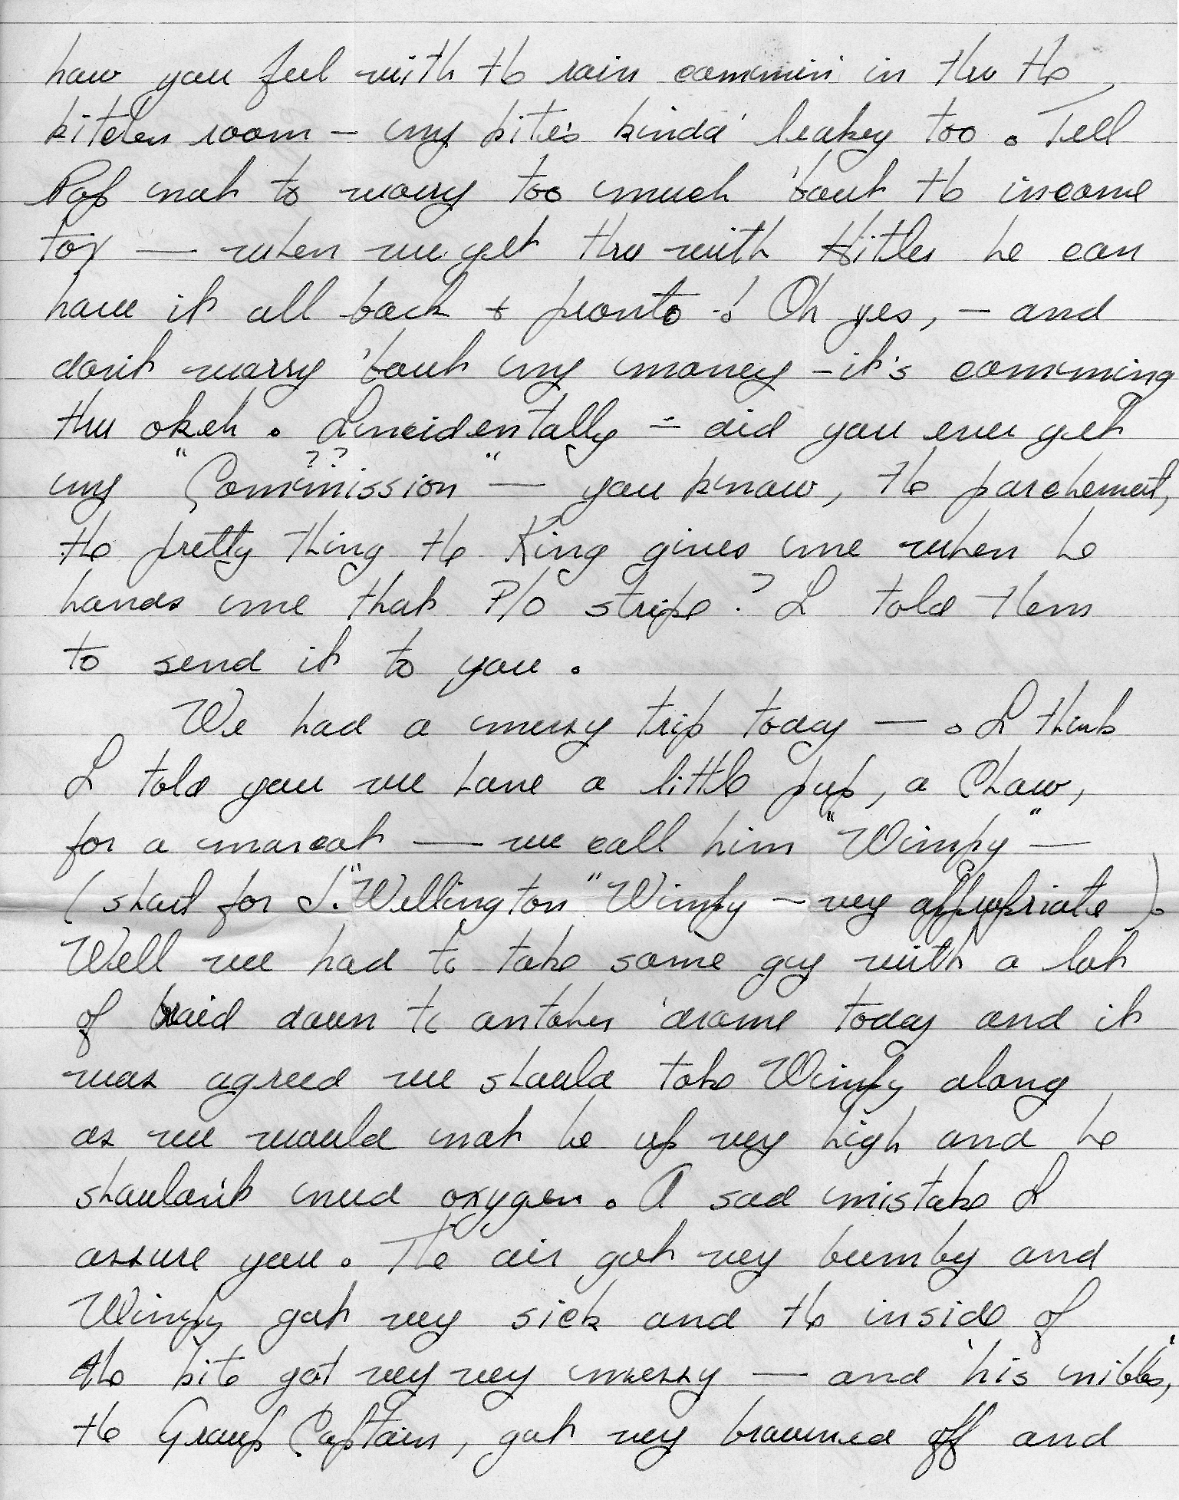 how you feel with the rain commin' in thru the
kitchen room – my kite's kinda' leakey too. Tell
Pop not to worry too much 'bout the income
tax — when we get thru with Hitler he can
have it all back & pronto! Oh yes, – and
don't worry 'bout my money – it's comming
thru okeh. Inncidentally – did you ever get
my "Commission" ?? — you know, the parchement,
the pretty thing the King gives me when he
hands me that P/O stripe? I told them
to send it to you.
We had a merry trip today —. I think
I told you we have a little pup, a Chow,
for a mascot — we call him "Wimpy" —
(short for J. "Wellington" Wimpy – very appropriate).
Well we had to take some guy with a lot
of braid down to antoher 'drome today and it
was agreed we should take Wimpy along
as we would not be up very high and he
shouldn't need oxygen. A sad mistake I
assure you. The air got very bumby and
Wimpy got very sick and the inside of
the kite got very very messy — and 'his nibbs',
the Group Captain, got very browned off and